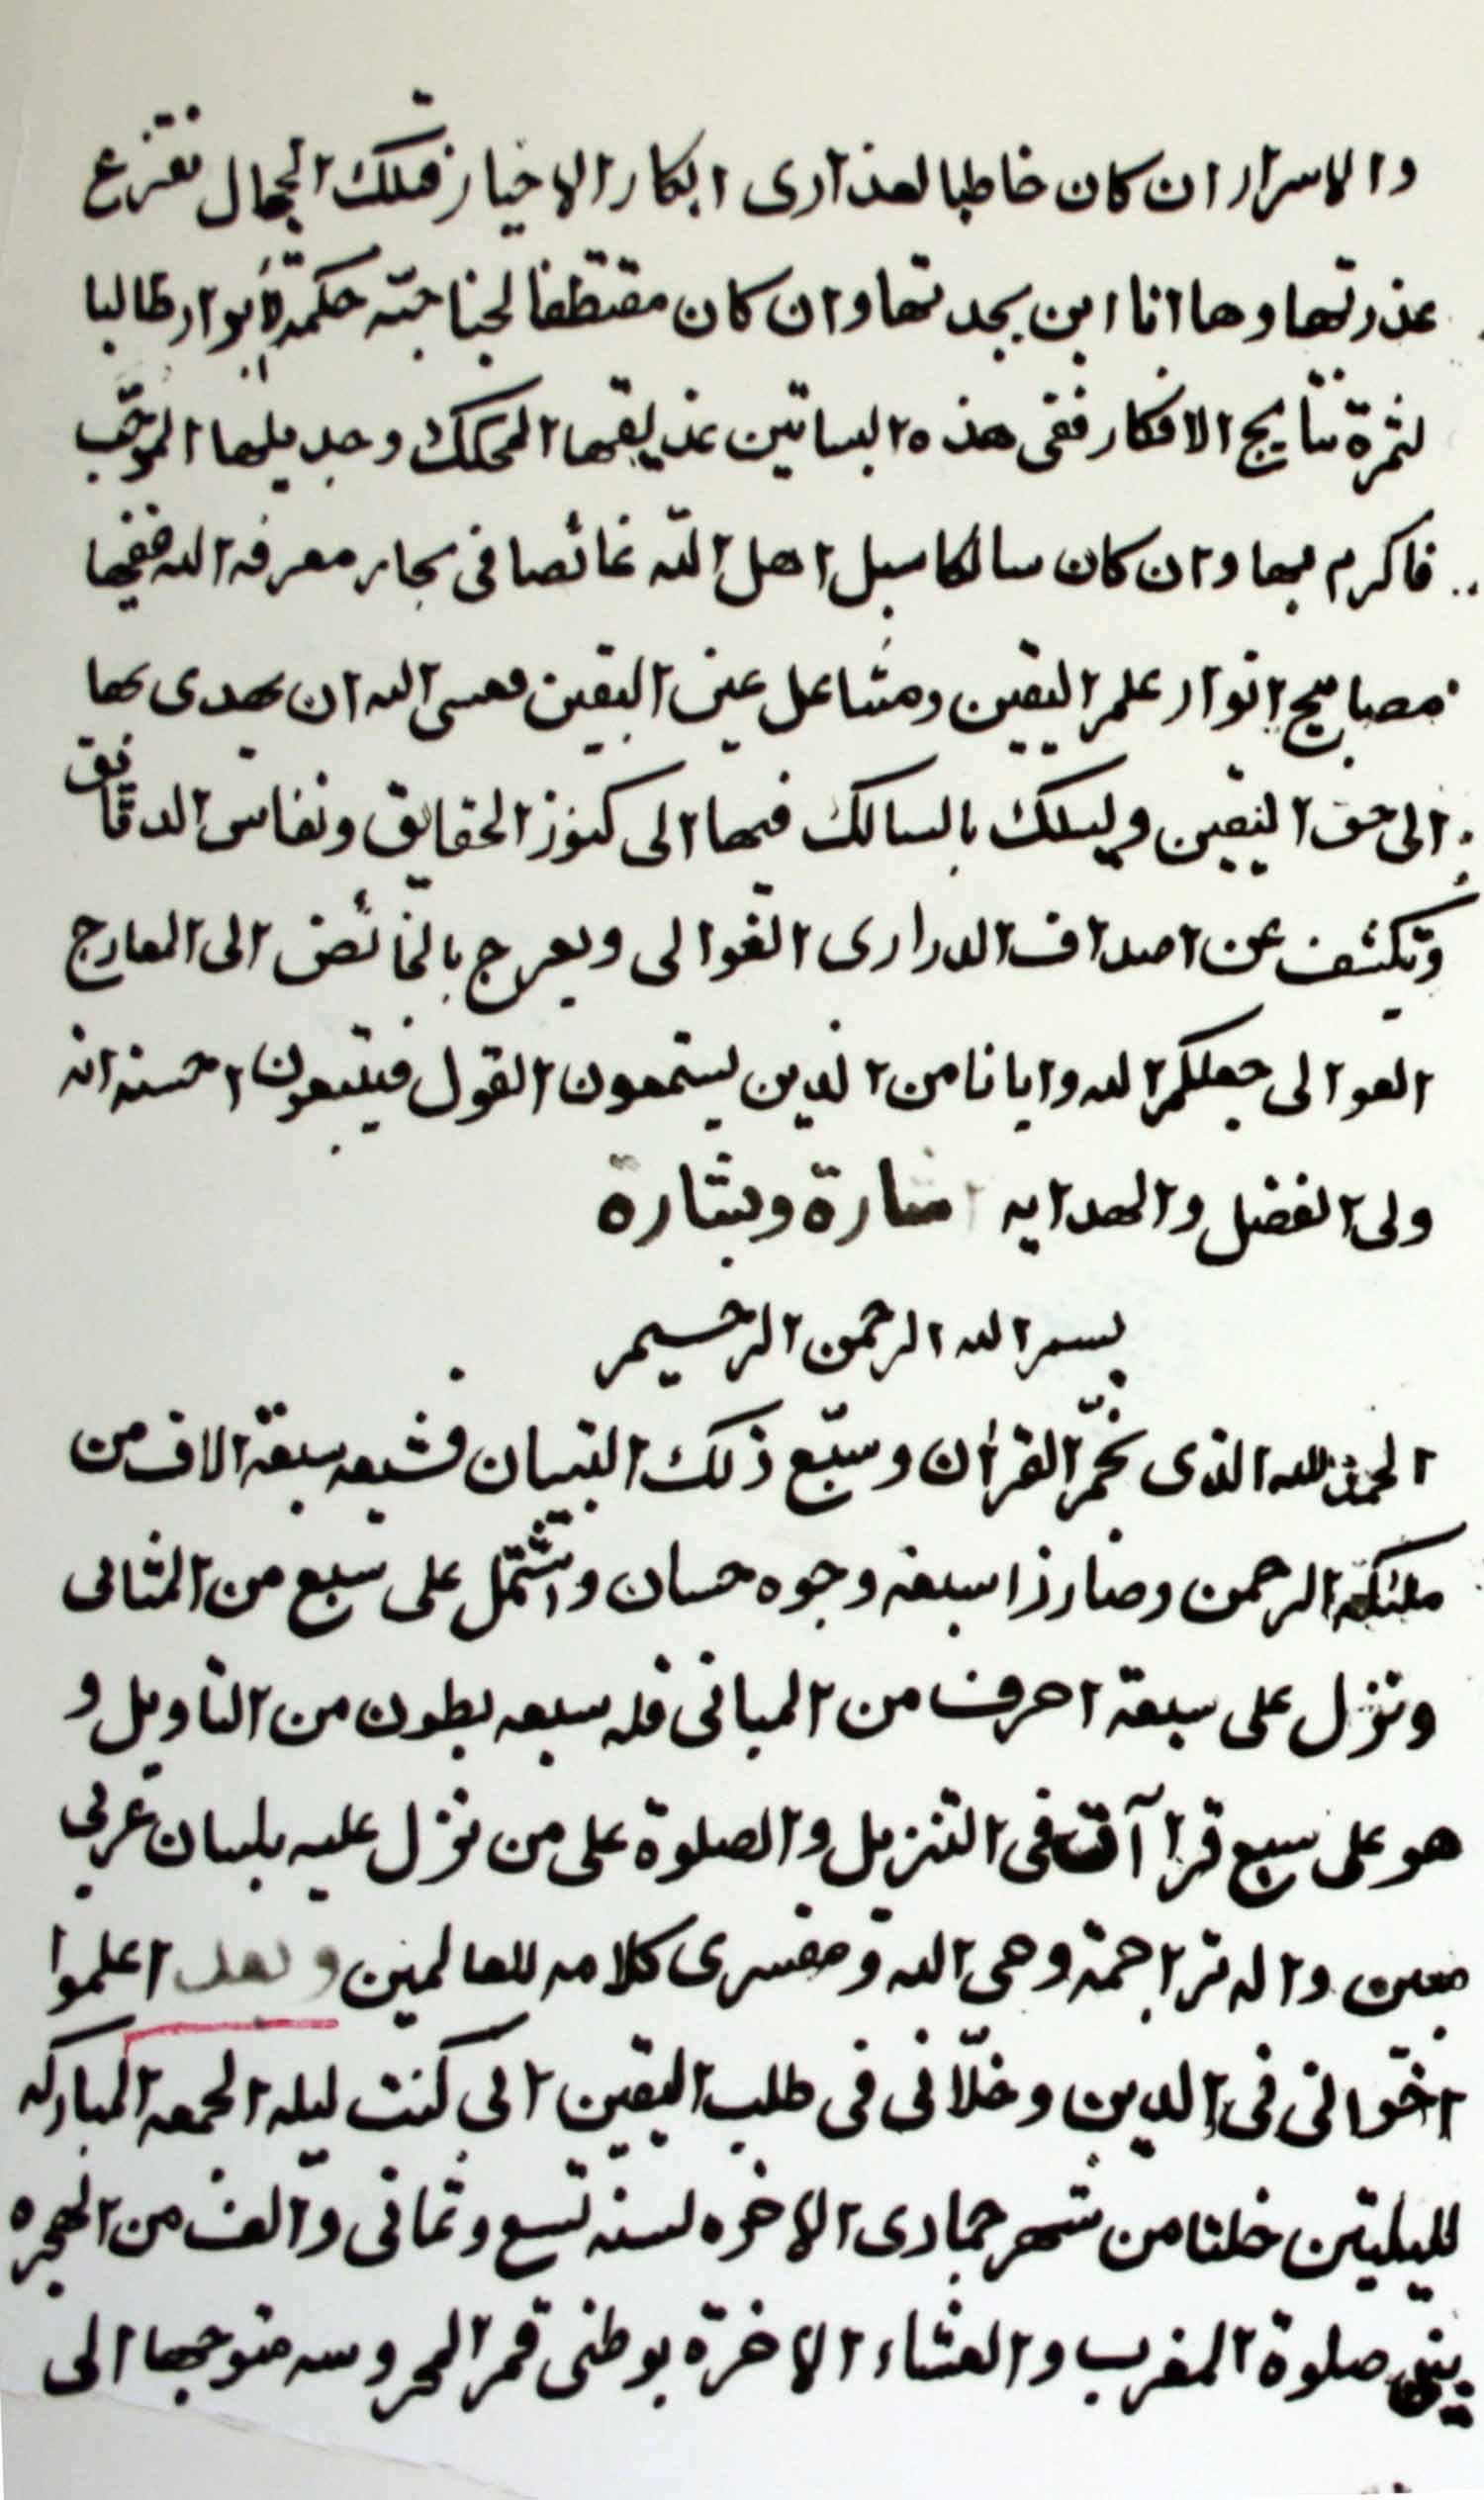 والاسرار ان كان خاطبا لعذارى ابكار الاخيار فتلك الجمال تفترع
عذرتها وها انا ابن بجدتها وان كان مقتطفا لجنا جنّة حكمة لأبوار طالبا
لثمرة نتايج الافكار ففى هذه البساتين عذيقها المحكك وجديلها المرجّب
فاكرم بها وان كان سالكا سبل اهل اللّه غائصا فى بحار معرفه الله ففيها
مصابيح انوار علم اليقين ومشاعل عين اليقين فعسى الله ان يهدى بها
الى حق اليقين ويسلك بالسالك فيها الى كنوز الحقايق ونفاس الدقايق
ويكشف عن اصداف الدرارى الغوالى ويعرج بالخائض الى المعارج
العوالى جعلكم الله وايانا من الذين يستمعون القول فيتبعون احسنه انه
ولى الفضل والهدايه اشارة وبشارة
بسم الله الرحمن الرحيم
الحمد لله الذى نجّم القرآن وسبّع ذلك التبيان فشيعه سبعة الاف من
ملئكة الرحمن وصار ذا سبعة وجوه حسان واشتمل على سبع من المثانى
ونزل على سبعة احرف من المبانى فله سبعه بطون من التاويل و
هو على سبع قراآت فى التنزيل والصلوة على من نزل عليه بلسان عربى
مبين واله تراجمة وحى الله ومفسرى كلامه للعالمين وبعد اعلموا
اخوانى فى الدين وخلّانى فى طلب اليقين انى كنت ليله الجمعه المباركه
لليليتين خلتا من شهر جمادى الاخره لسنه تسع وثمانى والف من الهجره
بين صلوة المغرب والعشاء الاخرة بوطنى قم المحروسه متوجها الى